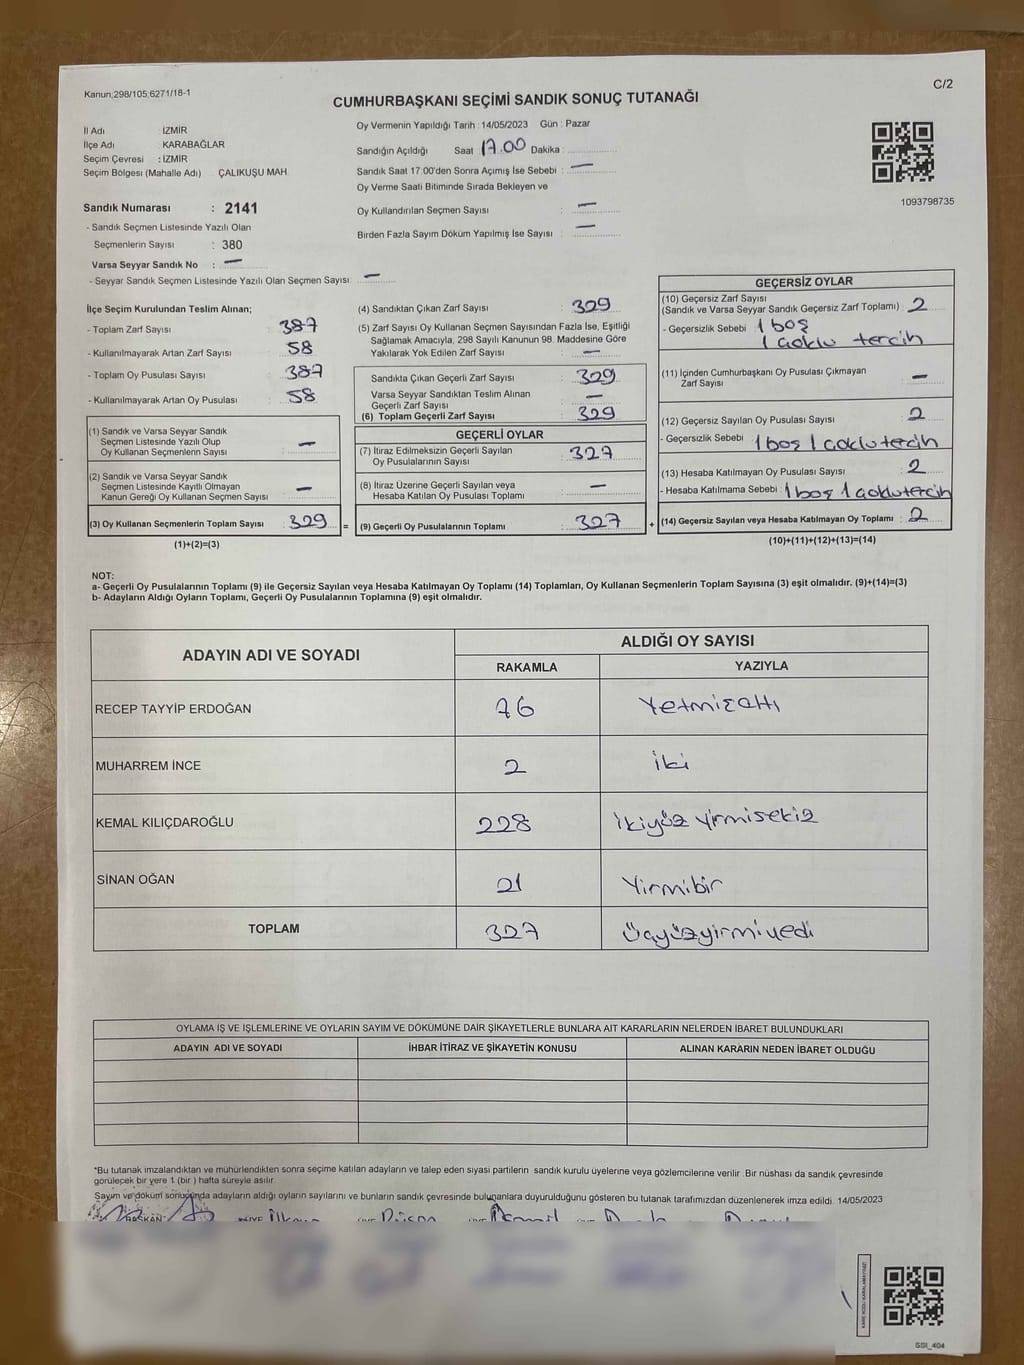 Kanun;298/105;6271/18-1
C/2
CUMHURBAŞKANI SEÇİMİ SANDIK SONUÇ TUTANAĞI
İl Adı İZMİR
İlçe Adı KARABAĞLAR
Seçim Çevresi : İZMİR
Seçim Bölgesi (Mahalle Adı) ÇALIKUŞU MAH
Sandık Numarası : 2141
- Sandık Seçmen Listesinde Yazılı Olan
Seçmenlerin Sayısı : 380
Varsa Seyyar Sandık No : —
- Seyyar Sandık Seçmen Listesinde Yazılı Olan Seçmen Sayısı —
Oy Vermenin Yapıldığı Tarih : 14/05/2023 Gün : Pazar
Sandığın Açıldığı Saat 17.00 Dakika :
Sandık Saat 17.00'den Sonra Açımış İse Sebebi : —
Oy Verme Saati Bitiminde Sırada Bekleyen ve
Oy Kullandırılan Seçmen Sayısı : —
Birden Fazla Sayım Döküm Yapılmış İse Sayısı : —
1093798735
İlçe Seçim Kurulundan Teslim Alınan;
- Toplam Zarf Sayısı : 387
- Kullanılmayarak Artan Zarf Sayısı : 58
- Toplam Oy Pusulası Sayısı : 387
- Kullanılmayarak Artan Oy Pusulası : 58
(1) Sandık ve Varsa Seyyar Sandık
Seçmen Listesinde Yazılı Olup
Oy Kullanan Seçmenlerin Sayısı : —
(2) Sandık ve Varsa Seyyar Sandık
Seçmen Listesinde Kayıtlı Olmayan
Kanun Gereği Oy Kullanan Seçmen Sayısı : —
(3) Oy Kullanan Seçmenlerin Toplam Sayısı : 329 =
(1)+(2)=(3)
(4) Sandıktan Çıkan Zarf Sayısı : 329
(5) Zarf Sayısı Oy Kullanan Seçmen Sayısından Fazla İse, Eşitliği
Sağlamak Amacıyla, 298 Sayılı Kanunun 98. Maddesine Göre
Yakılarak Yok Edilen Zarf Sayısı : —
Sandıkta Çıkan Geçerli Zarf Sayısı : 329
Varsa Seyyar Sandıktan Teslim Alınan
Geçerli Zarf Sayısı : —
(6) Toplam Geçerli Zarf Sayısı : 329
GEÇERLİ OYLAR
(7) İtiraz Edilmeksizin Geçerli Sayılan
Oy Pusulalarının Sayısı : 327
(8) İtiraz Üzerine Geçerli Sayılan veya
Hesaba Katılan Oy Pusulası Toplamı : —
(9) Geçerli Oy Pusulalarının Toplamı : 327 +
GEÇERSİZ OYLAR
(10) Geçersiz Zarf Sayısı
(Sandık ve Varsa Seyyar Sandık Geçersiz Zarf Toplamı) : 2
- Geçersizlik Sebebi : 1 boş
1 çoklu tercih
(11) İçinden Cumhurbaşkanı Oy Pusulası Çıkmayan
Zarf Sayısı : —
(12) Geçersiz Sayılan Oy Pusulası Sayısı : 2
- Geçersizlik Sebebi : 1 boş 1 çoklu tercih
(13) Hesaba Katılmayan Oy Pusulası Sayısı : 2
- Hesaba Katılmama Sebebi : 1 boş 1 çoklu tercih
(14) Geçersiz Sayılan veya Hesaba Katılmayan Oy Toplamı : 2
(10)+(11)+(12)+(13)=(14)
NOT:
a- Geçerli Oy Pusulalarının Toplamı (9) ile Geçersiz Sayılan veya Hesaba Katılmayan Oy Toplamı (14) Toplamları, Oy Kullanan Seçmenlerin Toplam Sayısına (3) eşit olmalıdır. (9)+(14)=(3)
b- Adayların Aldığı Oyların Toplamı, Geçerli Oy Pusulalarının Toplamına (9) eşit olmalıdır.
ADAYIN ADI VE SOYADI ALDIĞI OY SAYISI
RAKAMLA YAZIYLA
RECEP TAYYİP ERDOĞAN 76 Yetmişaltı
MUHARREM İNCE 2 iki
KEMAL KILIÇDAROĞLU 228 ikiyüz yirmisekiz
SİNAN OĞAN 21 Yirmibir
TOPLAM 327 üçyüzyirmiyedi
OYLAMA İŞ VE İŞLEMLERİNE VE OYLARIN SAYIM VE DÖKÜMÜNE DAİR ŞİKAYETLERLE BUNLARA AİT KARARLARIN NELERDEN İBARET BULUNDUKLARI
ADAYIN ADI VE SOYADI İHBAR İTİRAZ VE ŞİKAYETİN KONUSU ALINAN KARARIN NEDEN İBARET OLDUĞU
*Bu tutanak imzalandıktan ve mühürlendikten sonra seçime katılan adayların ve talep eden siyasi partilerin sandık kurulu üyelerine veya gözlemcilerine verilir. Bir nüshası da sandık çevresinde
görülecek bir yere 1 (bir ) hafta süreyle asılır.
Sayım ve döküm sonucunda adayların aldığı oyların sayılarını ve bunların sandık çevresinde bulunanlara duyurulduğunu gösteren bu tutanak tarafımızdan düzenlenerek imza edildi. 14/05/2023
BAŞKAN
KARE KODU KARALAMAYINIZ!
GSI_404